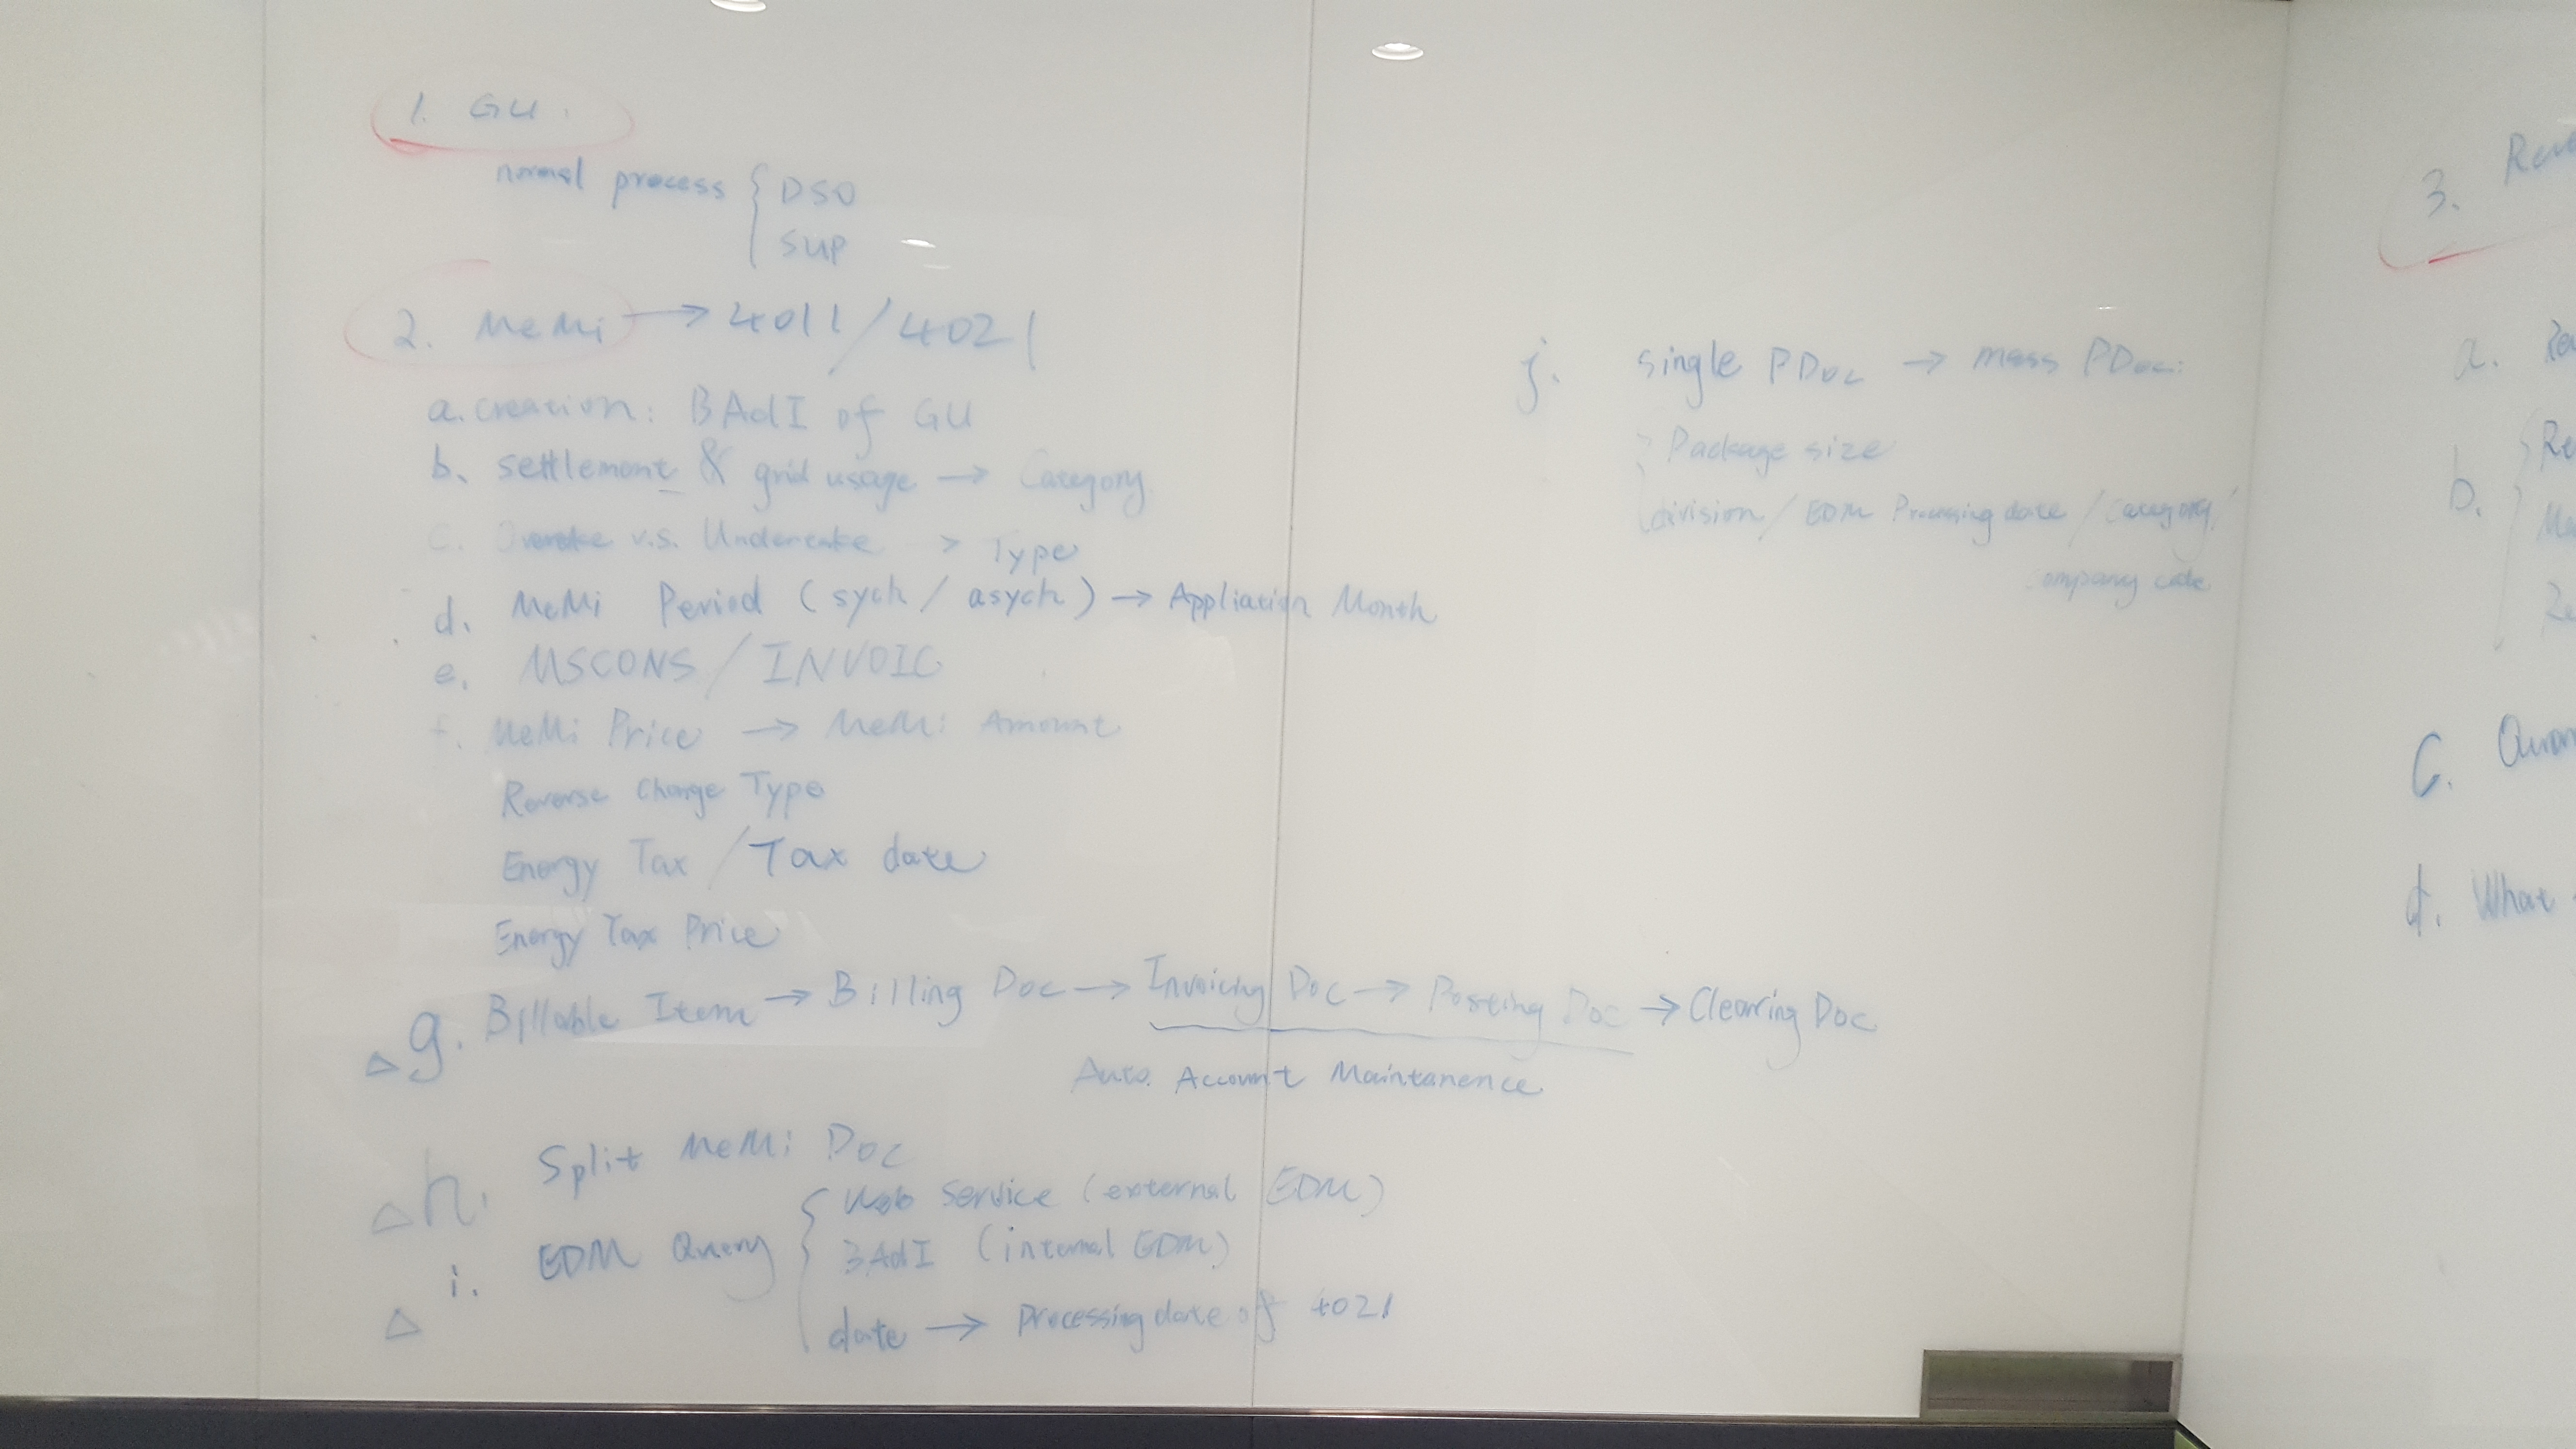 1. GU.
normal process { DSO
SUP
2. MeMi → 4011 / 4021
a. creation: BAdI of GU
b. settlement & grid usage → Category
c. v.s. Undertake → Type
d. MeMi Period (sych / asych) → Appliation Month
e. MSCONS / INVOIC
f. MeMi Price → MeMi Amount
Reverse Charge Type
Energy Tax / Tax date
Energy Tax Price
△ g. Billable Item → Billing Doc → Invoicing Doc → Posting Doc → Clearing Doc
Auto. Account Maintanence
△ h. Split MeMi Doc
△ i. EDM Query { Web Service (external EDM)
BAdI (internal EDM)
date → Processing date of 4021
j. single PDoc → mass PDoc:
Package size
division / EDM Processing date / Category /
company code
3.
a.
b.
C.
d. What